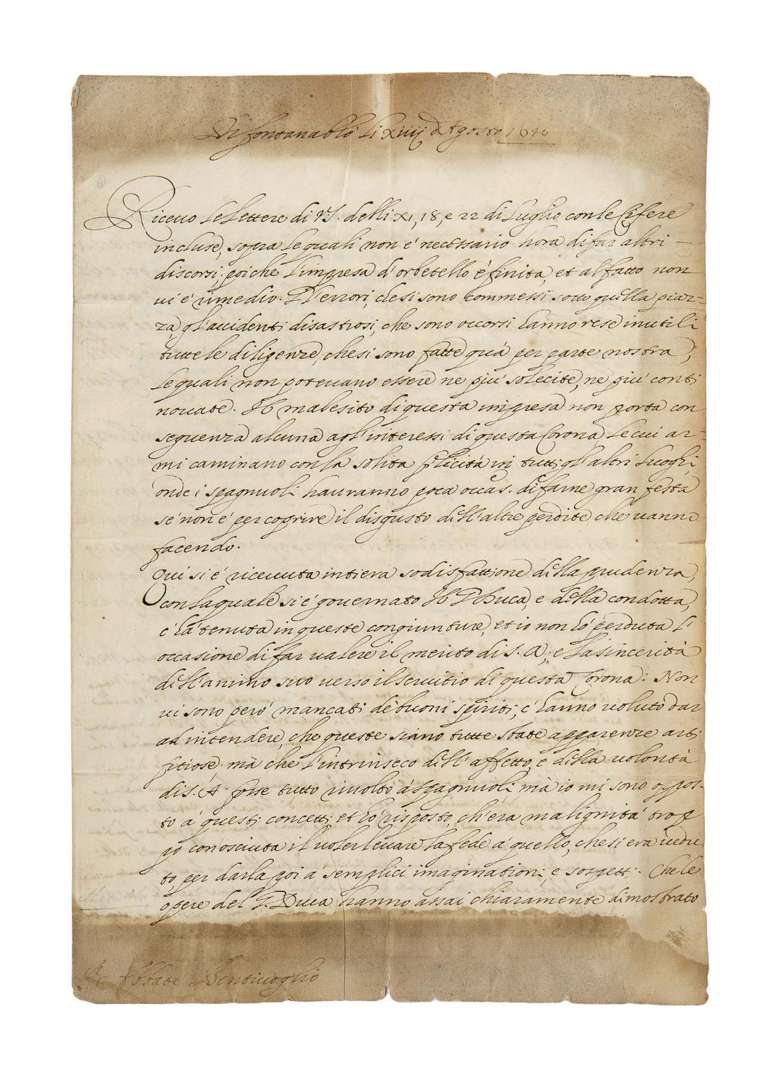 Di fontanablò li xiiij d'Agosto 1646
Ricevo le lettere di V.S. delli xi, 18, e 22 di Luglio con le Cifere
incluse, sopra le quali non è necessario hora di far altri
discorsi, poiche l'impresa d'orbetello è finita, et al fatto non
vi è rimedio. Gl'errori, che si sono commessi sotto quella piaz-
za, gl'accidenti disastrosi, che sono occorsi hanno rese inutili
tutte le diligenze, che si sono fatte quà per parte nostra,
le quali non potevano essere ne più solecite, ne più conti
novate. Il mal esito di questa impresa non porta con
seguenza alcuna agl'interessi di questa Corona le cui ar-
mi caminano con la solita felicità in tutti gl'altri luoghi,
onde i spagnuoli hauranno poca occas. di farne gran festa
se non è per coprire il disgusto dell'altre perdite che vanno
facendo.
Qui si è ricevuta intiera sodisfattione della prudenza,
con la quale si è governato Il S. Duca, e della condotta,
c'ha tenuta in queste congiunture, et io non ho perduta l'
occasione di far valere il merito di S. A., e la sincerità
dell'animo suo verso il servitio di questa Corona. Non
vi sono però mancati de buoni spiriti, c'hanno voluto dar
ad intendere, che queste siano tutte state apparenze arti
fitiose, mà che l'intrinseco dell'affetto, e della volontà
di S. A. fosse tutto rivolto à Spagnuoli mà io mi sono oppos-
to a questi concetti, et hò risposto, ch'era malignità trop
po conosciuta il voler levare la fede à quello, che si era vedu
to per darla poi à semplici imaginationi, e sospetti. Che le
opere del S. Duca hanno assai chiaramente dimostrato
S. Abbate Bentivoglio